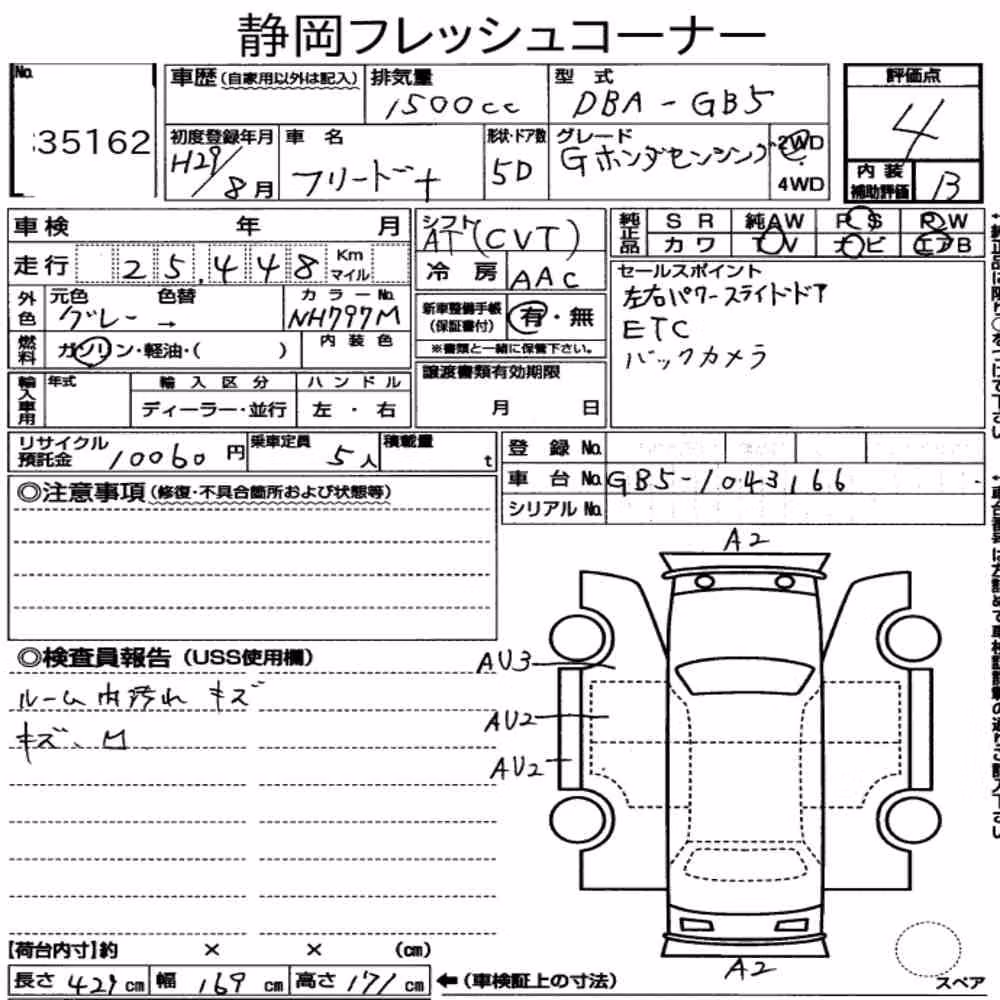 静岡フレッシュコーナー
No.
35162
車歴(自家用以外は記入)
排気量
1500cc
型 式
DBA-GB5
評価点
4
初度登録年月
H29/8月
車 名
フリード+
形状・ドア数
5D
グレード
Gホンダセンシング
2WD
4WD
内 装
補助評価
B
車検 年 月
走行 25,448 Km
マイル
シフト
AT(CVT)
冷 房
AAC
純正品
SR 純AW PS PW
カワ TV ナビ エアB
外色
元色 色替
グレー →
カラーNo.
NH797M
新車整備手帳
(保証書付)
有・無
※書類と一緒に保管下さい。
セールスポイント
左右パワースライドドア
ETC
バックカメラ
燃料
ガソリン・軽油・( )
内装色
輸入車用
年式
輸入区分
ディーラー・並行
ハンドル
左・右
譲渡書類有効期限
月 日
リサイクル
預託金
10060円
乗車定員
5人
積載量
t
登 録 No.
車 台 No.
GB5-1043166
シリアル No.
◎注意事項(修復・不具合箇所および状態等)
◎検査員報告(USS使用欄)
ルーム内汚れ キズ
キズ、凹
A2
AU3
AU2
AU2
A2
スペア
[荷台内寸]約 × × (cm)
長さ 429 cm 幅 169 cm 高さ 171 cm ←(車検証上の寸法)